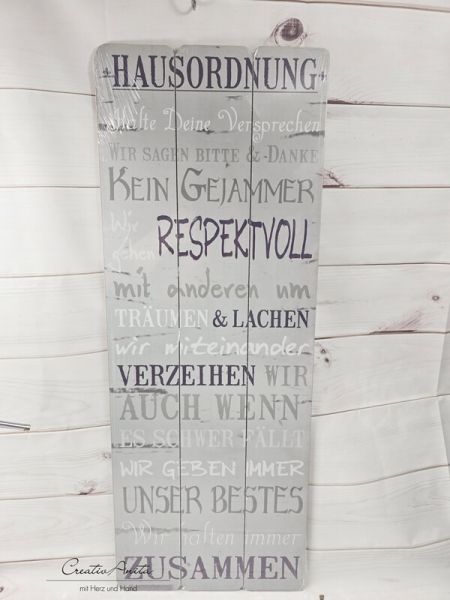 HAUSORDNUNG
Halte Deine Versprechen
WIR SAGEN BITTE & DANKE
KEIN GEJAMMER
Wir gehen RESPEKTVOLL
mit anderen um
TRÄUMEN & LACHEN
wir miteinander
VERZEIHEN WIR
AUCH WENN
ES SCHWER FÄLLT
WIR GEBEN IMMER
UNSER BESTES
Wir halten immer
ZUSAMMEN
CreativAnita
mit Herz und Hand